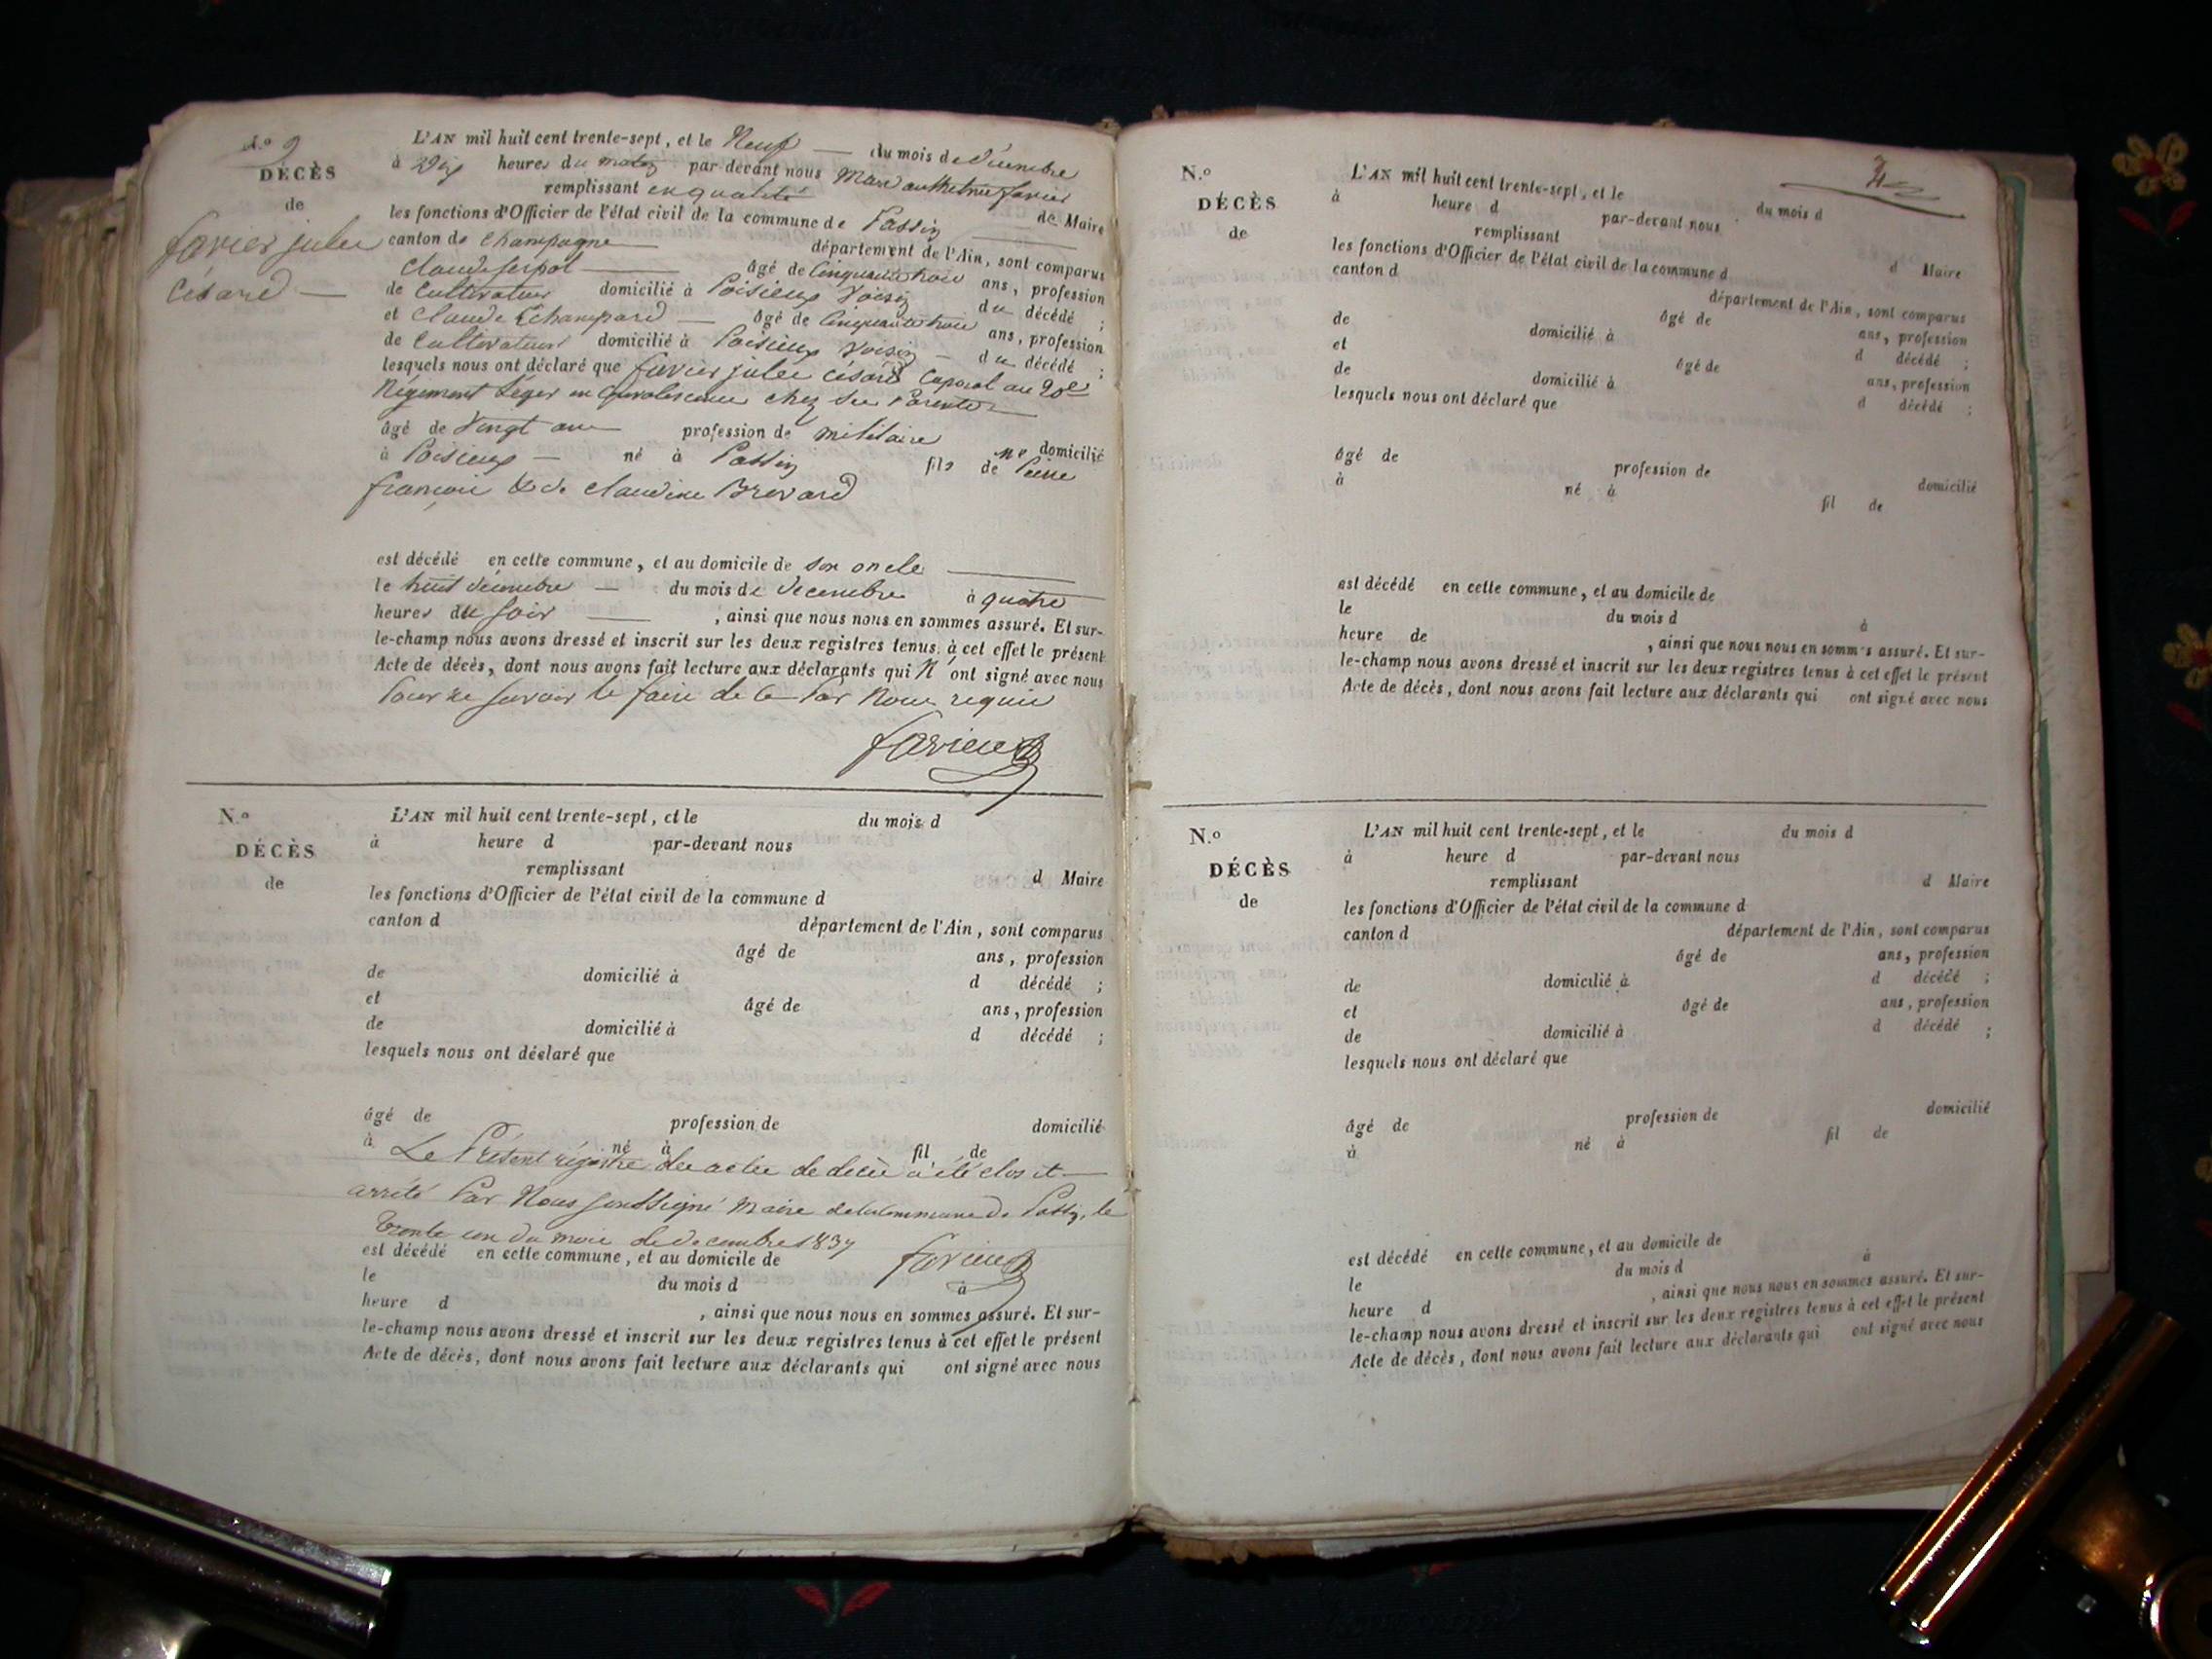 N.o 9
DÉCÈS
de
favier jules
Césard
L'AN mil huit cent trente-sept, et le Neuf du mois de décembre
à Dix heures du matin par-devant nous Marc anthelme favier
remplissant en qualité de Maire
les fonctions d'Officier de l'état civil de la commune de Passin
canton de Champagne département de l'Ain, sont comparus
Claude serpol âgé de Cinquante trois ans, profession
de Cultivateur domicilié à Poisieux Voisin du décédé ;
et Claude Échampard âgé de Cinquante trois ans, profession
de Cultivateur domicilié à Poisieux Voisin du décédé ;
lesquels nous ont déclaré que favier jules Césard Caporal au 20e
Régiment Léger en Convalescence chez ses Parents
âgé de Vingt ans profession de militaire domicilié
à Poisieux né à Passin fils de Pierre
françois & de claudine Brevard
est décédé en cette commune, et au domicile de son oncle
le huit décembre du mois de decembre à quatre
heures du soir , ainsi que nous nous en sommes assuré. Et sur-
le-champ nous avons dressé et inscrit sur les deux registres tenus à cet effet le présent
Acte de décès, dont nous avons fait lecture aux déclarants qui N'ont signé avec nous
Pour ne savoir le faire de ce Par Nous requis
favier
N.o
DÉCÈS
de
L'AN mil huit cent trente-sept, et le du mois d
à heure d par-devant nous
remplissant d Maire
les fonctions d'Officier de l'état civil de la commune d
canton d département de l'Ain, sont comparus
âgé de ans, profession
de domicilié à d décédé ;
et âgé de ans, profession
de domicilié à d décédé ;
lesquels nous ont déclaré que
âgé de profession de domicilié
à né à fil de
Le Présent régistre des actes de décès a été clos et
arrêté Par Nous soussigné Maire de la Commune de Passin, le
Trente un du mois de decembre 1837
favier
est décédé en cette commune, et au domicile de
le du mois d à
heure d , ainsi que nous nous en sommes assuré. Et sur-
le-champ nous avons dressé et inscrit sur les deux registres tenus à cet effet le présent
Acte de décès, dont nous avons fait lecture aux déclarants qui ont signé avec nous
N.o
DÉCÈS
de
L'AN mil huit cent trente-sept, et le du mois d
à heure d par-devant nous
remplissant d Maire
les fonctions d'Officier de l'état civil de la commune d
canton d département de l'Ain, sont comparus
âgé de ans, profession
de domicilié à d décédé ;
et âgé de ans, profession
de domicilié à d décédé ;
lesquels nous ont déclaré que
âgé de profession de domicilié
à né à fil de
est décédé en cette commune, et au domicile de
le du mois d à
heure de , ainsi que nous nous en sommes assuré. Et sur-
le-champ nous avons dressé et inscrit sur les deux registres tenus à cet effet le présent
Acte de décès, dont nous avons fait lecture aux déclarants qui ont signé avec nous
N.o
DÉCÈS
de
L'AN mil huit cent trente-sept, et le du mois d
à heure d par-devant nous
remplissant d Maire
les fonctions d'Officier de l'état civil de la commune d
canton d département de l'Ain, sont comparus
âgé de ans, profession
de domicilié à d décédé ;
et âgé de ans, profession
de domicilié à d décédé ;
lesquels nous ont déclaré que
âgé de profession de domicilié
à né à fil de
est décédé en cette commune, et au domicile de
le du mois d à
heure d , ainsi que nous nous en sommes assuré. Et sur-
le-champ nous avons dressé et inscrit sur les deux registres tenus à cet effet le présent
Acte de décès, dont nous avons fait lecture aux déclarants qui ont signé avec nous